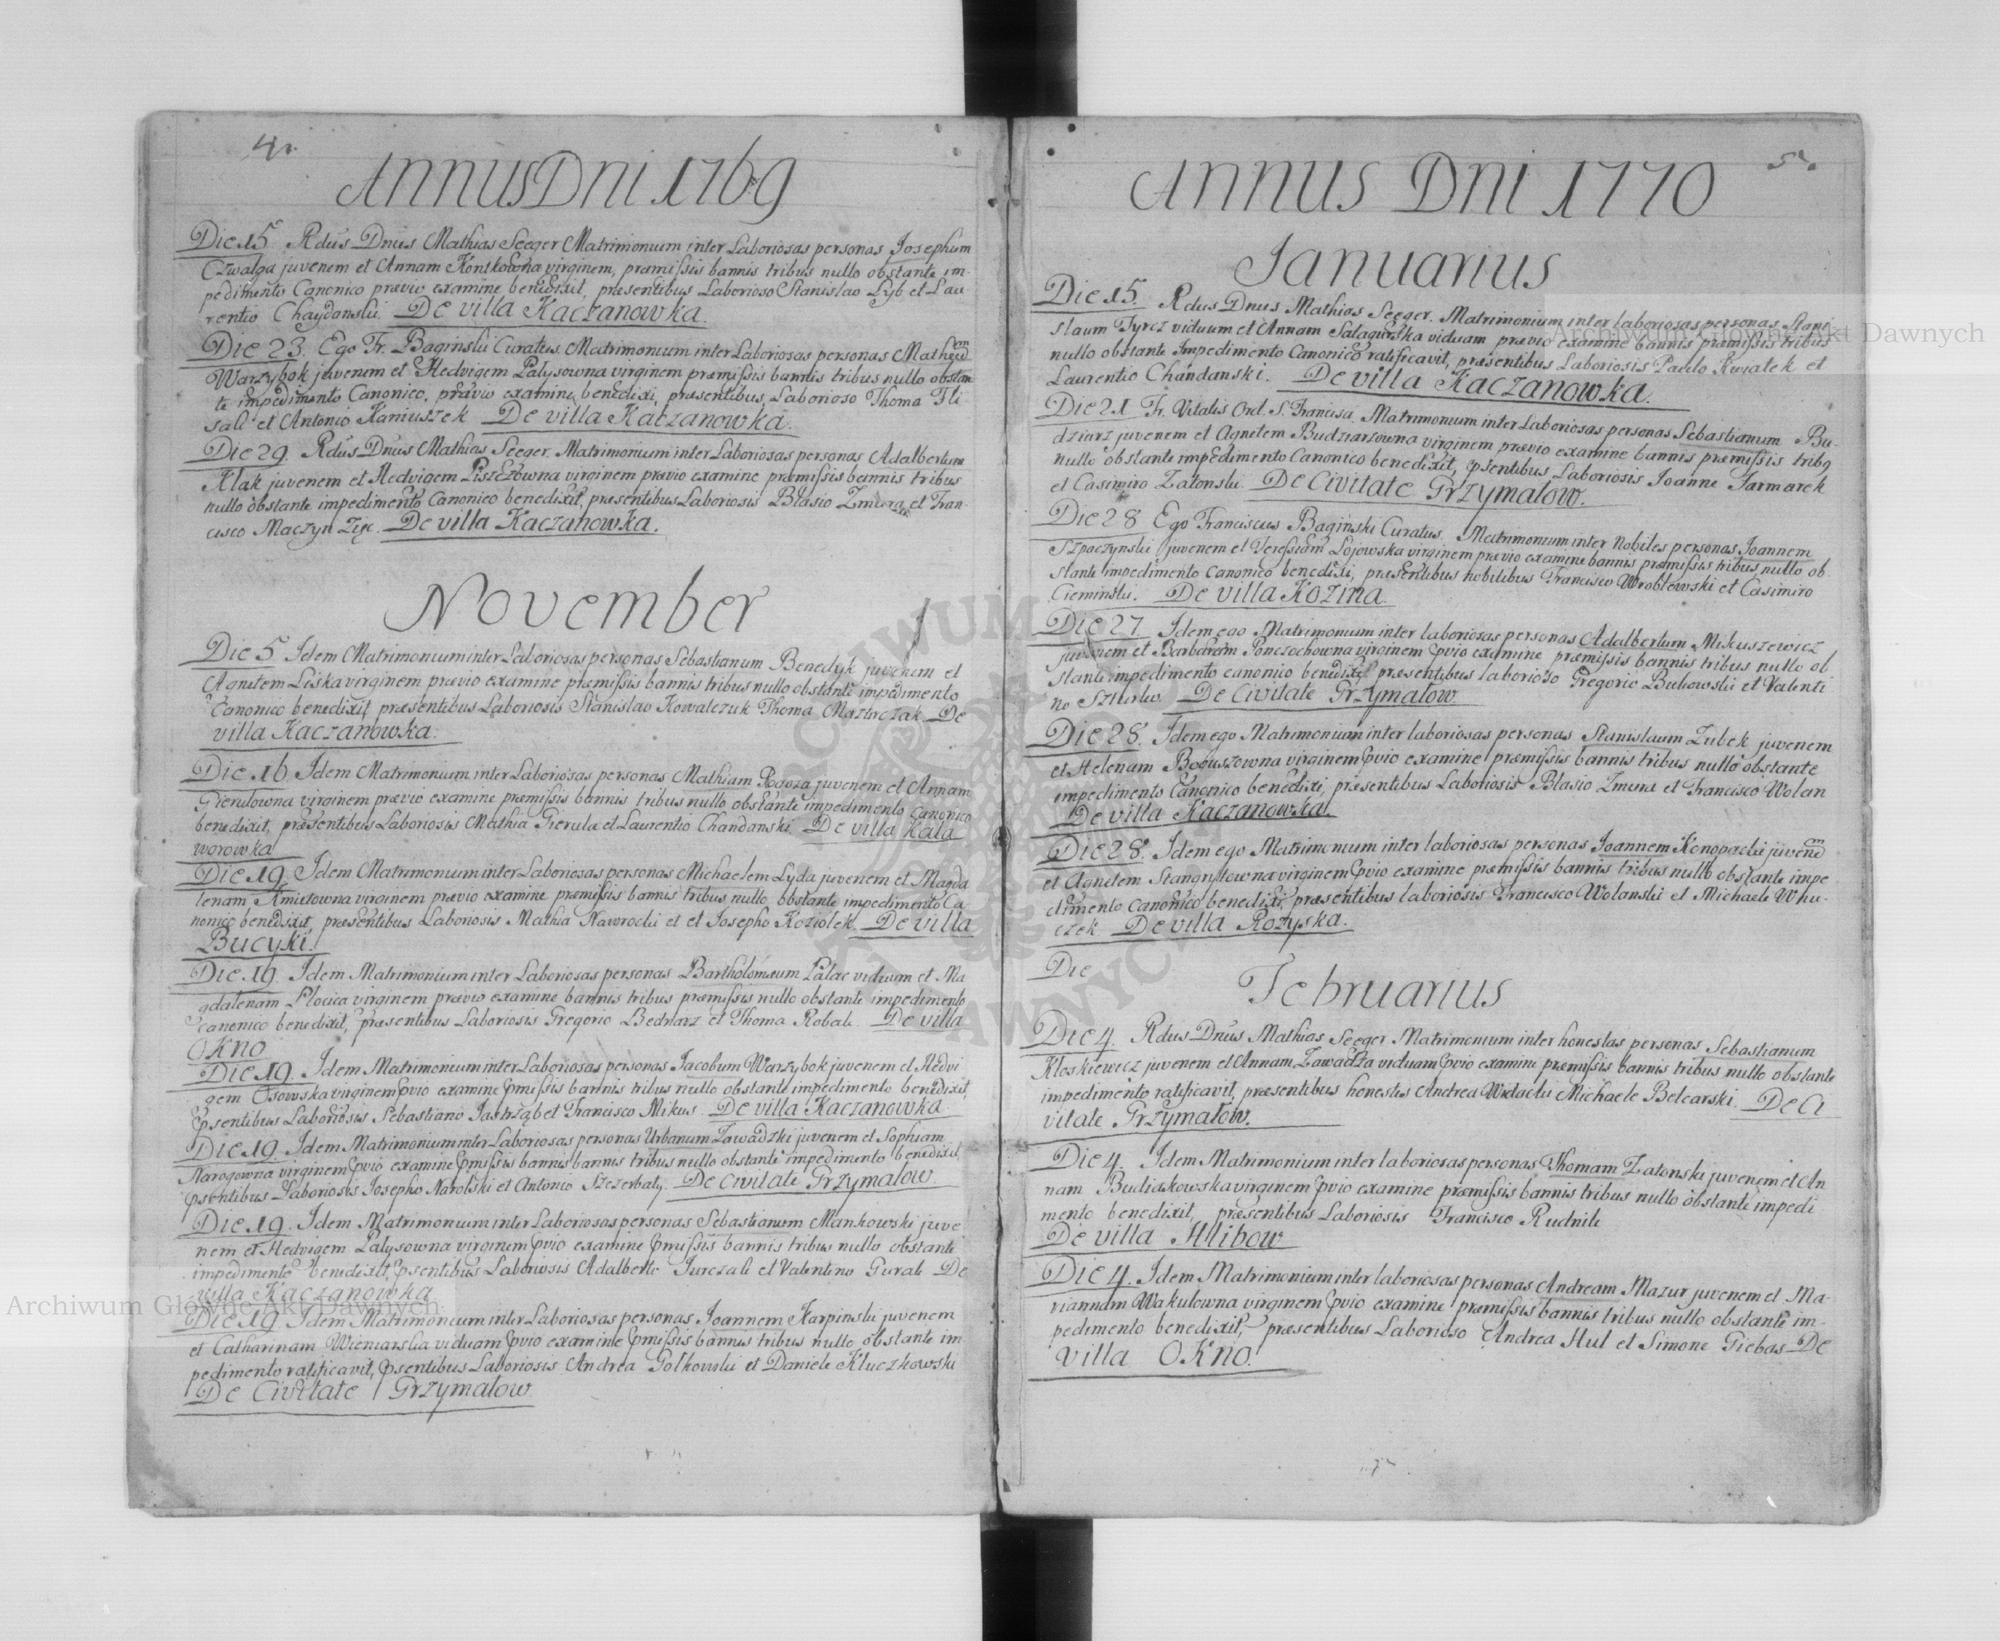 4.
Annus Dni 1769
Die 15 Rdus Dnus Mathias Seeger Matrimonium inter Laboriosas personas Josephum
Czwalga juvenem et Annam Konskowna virginem, præmissis bannis tribus nullo obstante im-
pedimento Canonico prævio examine benedixit, præsentibus Laborioso Stanislao Lyb et Lau-
rentio Chaydanski. De villa Kaczanowka.
Die 23. Ego Fr. Baginski Curatus. Matrimonium inter Laboriosas personas Matheum
Warzybok juvenem et Hedvigem Palysowna virginem præmissis bannis tribus nullo obstan
te impedimento Canonico, prævio examine benedixi, præsentibus, Laborioso Thoma Fli
sak et Antonio Haniuszek De villa Kaczanowka.
Die 29. Rdus Dnus Mathias Seeger. Matrimonium inter Laboriosas personas Adalbertum
Klak juvenem et Hedvigem virginem prævio examine præmissis bannis tribus
nullo obstante impedimento Canonico benedixit, præsentibus Laboriosis Blasio Zmura et Fran-
cisco Maczyn De villa Kaczanowka.
November
Die 5 Idem Matrimonium inter Laboriosas personas Sebastianum Benedyk juvenem et
Agnetem Liska virginem prævio examine præmissis bannis tribus nullo obstante impedimento
Canonico benedixit præsentibus Laboriosis Stanislao Kowalczuk Thoma Mazurczak De
villa Kaczanowka.
Die 16 Idem Matrimonium inter Laboriosas personas Mathiam Rogoza juvenem et Annam
Gierulowna virginem prævio examine præmissis bannis tribus nullo obstante impedimento Canonico
benedixit, præsentibus Laboriosis Mathia Gierula et Laurentio Chandanski. De villa Kała
worowka
Die 19. Idem Matrimonium inter Laboriosas personas Michaelem Lyda juvenem et Magda
lenam Kmietowna virginem prævio examine præmissis bannis tribus nullo obstante impedimento Ca
nonico benedixit, præsentibus Laboriosis Mathia Nawrocki et et Josepho Koziolek. De villa
Bucyki.
Die 19. Idem Matrimonium inter Laboriosas personas Bartholomæum Palac viduum et Ma
gdalenam Plocica virginem prævio examine bannis tribus præmissis nullo obstante impedimento
canonico benedixit, præsentibus Laboriosis Gregorio Bednarz et Thoma Robak. De villa
Okno
Die 19. Idem Matrimonium inter Laboriosas personas Jacobum Warzybok juvenem et Hedvi
gem Osowska virginem pvio examine pmissis bannis tribus nullo obstante impedimento benedixit,
psentibus Laboriosis Sebastiano Jastrząb et Francisco Mikus. De villa Kaczanowka
Die 19. Idem Matrimonium inter Laboriosas personas Urbanum Zawadzki juvenem et Sophiam
Narogowna virginem pvio examine pmissis bannis bannis tribus nullo obstante impedimento benedixit,
psentibus Laboriosis Josepho Narolski et Antonio Szczerbaty. De Civitate Grzymałow
Die 19. Idem Matrimonium inter Laboriosas personas Sebastianum Mankowski juve
nem et Hedvigem Palysowna virginem pvio examine pmissis bannis tribus nullo obstante
impedimento benedixit, psentibus Laboriosis Adalberto Jurczak et Valentino Gurak De
villa Kaczanowka
Die 19. Idem Matrimonium inter Laboriosas personas Joannem Karpinski juvenem
et Catharinam Wieniarska viduam pvio examine pmissis bannis tribus nullo obstante im
pedimento ratificavit, psentibus Laboriosis Andrea Golkowski et Daniele Kluczkowski
De Civitate Grzymałow
5.
Annus Dni 1770
Januarius
Die 15. Rdus Dnus Mathias Seeger. Matrimonium inter laboriosas personas Stani
slaum Tyrcz viduum et Annam Salagurska viduam prævio examine bannis præmissis tribus
nullo obstante Impedimento Canonico ratificavit, præsentibus Laboriosis Paulo Kwiatek et
Laurentio Chandanski. De villa Kaczanowka.
Die 21. Fr. Vitalis Ord. S. Francisci. Matrimonium inter Laboriosas personas Sebastianum Bu-
dziarz juvenem et Agnetem Budziarzowna virginem prævio examine bannis præmissis tribq
nullo obstante impedimento Canonico benedixit, psentibus Laboriosis Joanne Jarmarek
et Casimiro Zatonski. De Civitate Grzymałow.
Die 28 Ego Franciscus Baginski Curatus. Matrimonium inter Nobiles personas Joannem
Szpaczynski juvenem et Teressiam Lojowska virginem prævio examine bannis præmissis tribus nullo ob-
stante impedimento canonico benedixi, præsentibus nobilibus Francisco Wroblewski et Casimiro
Cieminski. De villa Kozina
Die 27 Idem ego Matrimonium inter laboriosas personas Adalbertum Mikuszewicz
juvenem et Barbaram virginem pvio examine præmissis bannis tribus nullo ob
stante impedimento canonico benedixi præsentibus laborioso Gregorio Bukowski et Valenti
no De Civitate Grzymałow
Die 28. Idem ego Matrimonium inter laboriosas personas Stanislaum Zubek juvenem
et Helenam Boguszowna virginem pvio examine præmissis bannis tribus nullo obstante
impedimento Canonico benedixi, præsentibus Laboriosis Blasio Zmura et Francisco Wolan
De villa Kaczanowka.
Die 28. Idem ego Matrimonium inter laboriosas personas Joannem Konopacki juvenem
et Agnetem virginem pvio examine præmissis bannis tribus nullo obstante impe
dimento canonico benedixi, præsentibus laboriosis Francisco Wolanski et Michaele Whu-
czek De villa Rożyska.
Die
Februarius
Die 4. Rdus Dnus Mathias Seeger Matrimonium inter honestas personas Sebastianum
Kloskiewicz juvenem et Annam Zawadzka viduam pvio examine præmissis bannis tribus nullo obstante
impedimento ratificavit, præsentibus honestis Andrea Widacki Michaele Belcarski. De Ci
vitate Grzymałow.
Die 4. Idem Matrimonium inter laboriosas personas Thomam Zatonski juvenem et An
nam Budiakowska virginem pvio examine præmissis bannis tribus nullo obstante impedi
mento benedixit, præsentibus Laboriosis Francisco Rudnik
De villa Hlibow
Die 4. Idem Matrimonium inter laboriosas personas Andream Mazur juvenem et Ma-
riannam Wakulowna virginem pvio examine præmissis bannis tribus nullo obstante im-
pedimento benedixit, præsentibus Laborioso Andrea Hul et Simone Giebas De
villa Okno.
Archiwum Główne Akt Dawnych
Archiwum Główne Akt Dawnych